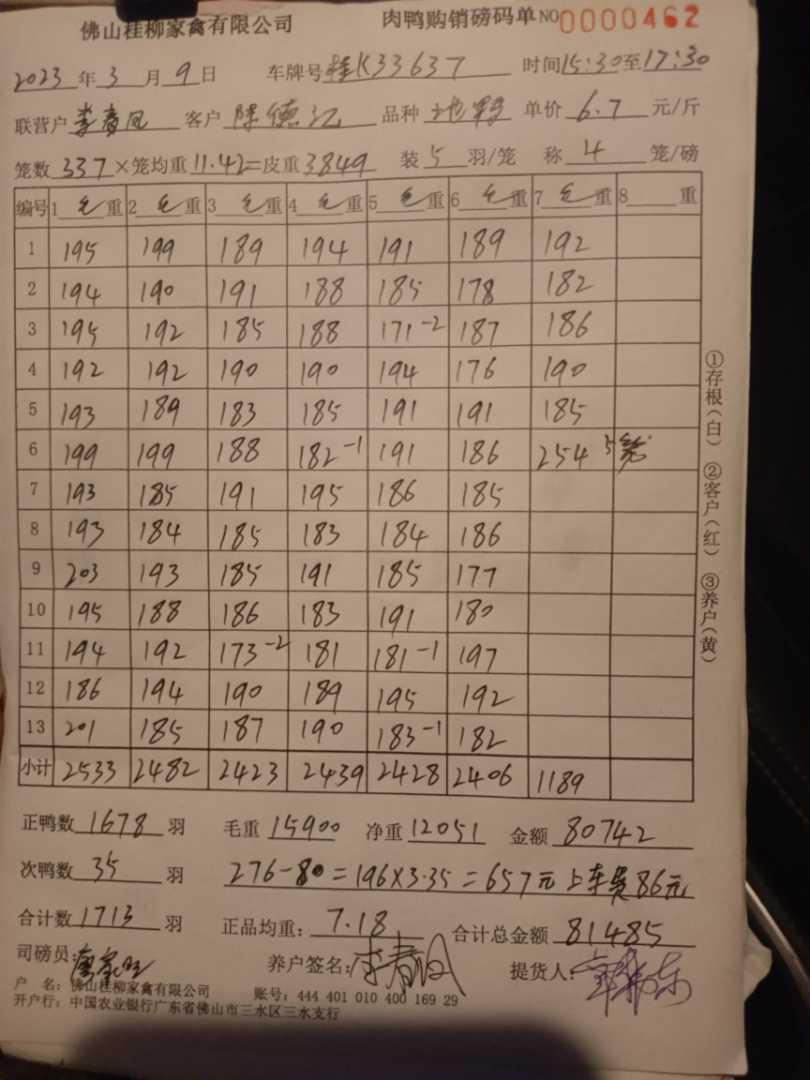 佛山桂柳家禽有限公司 肉鸭购销磅码单 NO 0000462
2023 年 3 月 9 日 车牌号 桂K33637 时间 15:30 至 17:30
联营户 李春 客户 陈德江 品种 单价 6.7 元/斤
笼数 337 ×笼均重 11.42 =皮重 3849 装 5 羽/笼 称 4 笼/磅
编号 1 毛 重 2 毛 重 3 毛 重 4 毛 重 5 毛 重 6 毛 重 7 毛 重 8 重
1 195 199 189 194 191 189 192
2 194 190 191 188 185 178 182
3 195 192 185 188 171-2 187 186
4 192 192 190 190 194 176 190
5 193 189 183 185 191 191 185
6 199 199 188 182-1 191 186 254 5笼
7 193 185 191 195 186 185
8 193 184 185 183 184 186
9 203 193 185 191 185 177
10 195 188 186 183 191 180
11 194 192 173-2 181 181-1 197
12 186 194 190 189 195 192
13 201 185 187 190 183-1 182
小计 2533 2482 2423 2439 2428 2406 1189
①存根(白) ②客户(红) ③养户(黄)
正鸭数 1678 羽 毛重 15900 净重 12051 金额 80742
次鸭数 35 羽 276-80=196×3.35=657元 上车费86元
合计数 1713 羽 正品均重: 7.18 合计总金额 81485
司磅员: 养户签名: 李春 提货人:
户 名: 佛山桂柳家禽有限公司 账号: 444 401 010 400 169 29
开户行: 中国农业银行广东省佛山市三水区三水支行